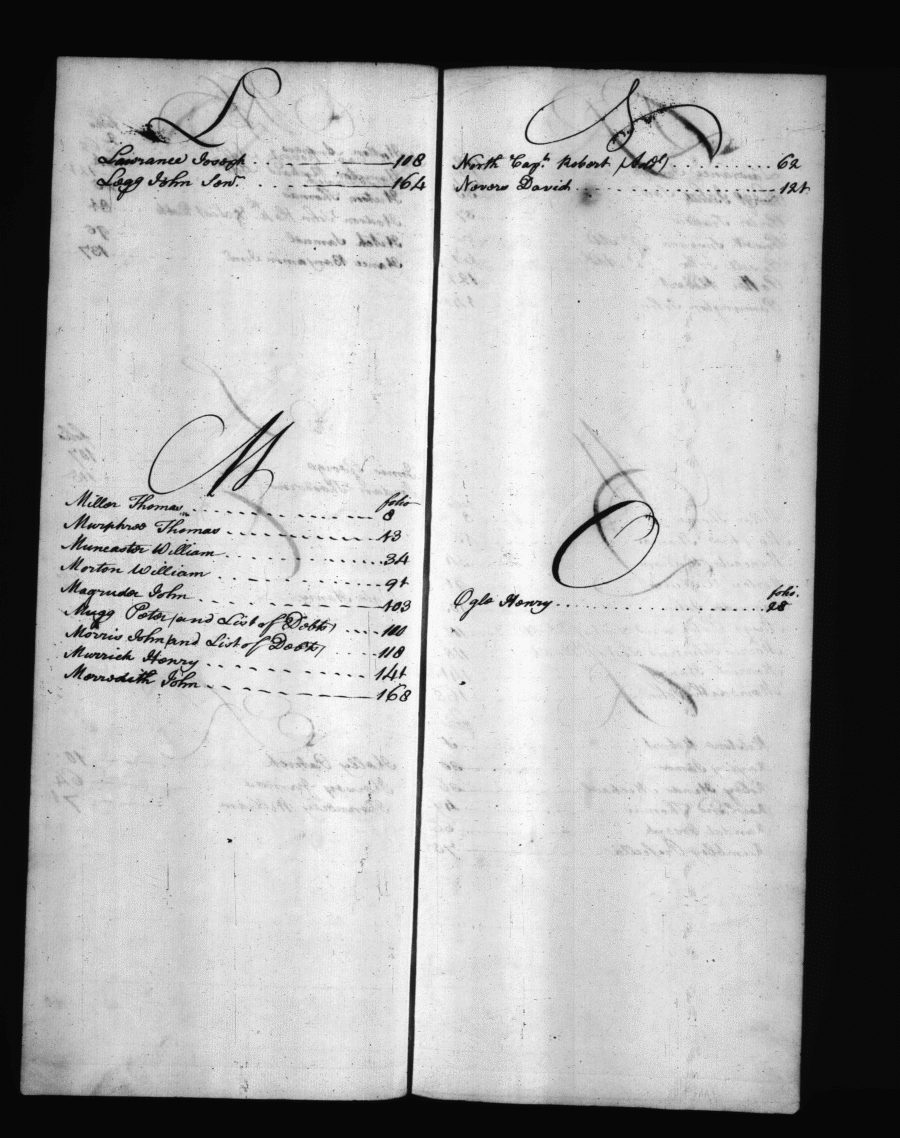 L
Lawrance Joseph 108
Legg John Senr. 164
M
folio
Miller Thomas 8
Murphree Thomas 13
Muncaster William 34
Morton William 91
Magruder John 103
Mugg Peter (and List of Debts) 110
Morris John (and List of Debts) 118
Murrick Henry 141
Merredith John 168
N
North Capn. Robert 62
Nevers David 121
O
folio.
Ogle Henry 28